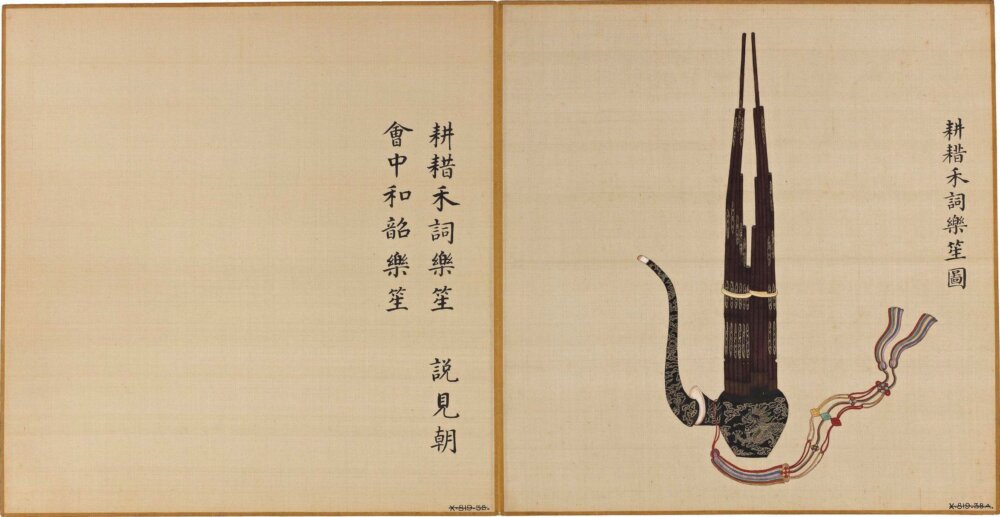 耕耤禾詞樂笙圖
耕耤禾詞樂笙　説見朝
會中和韶樂笙
X-819-38.
X-819-38A.